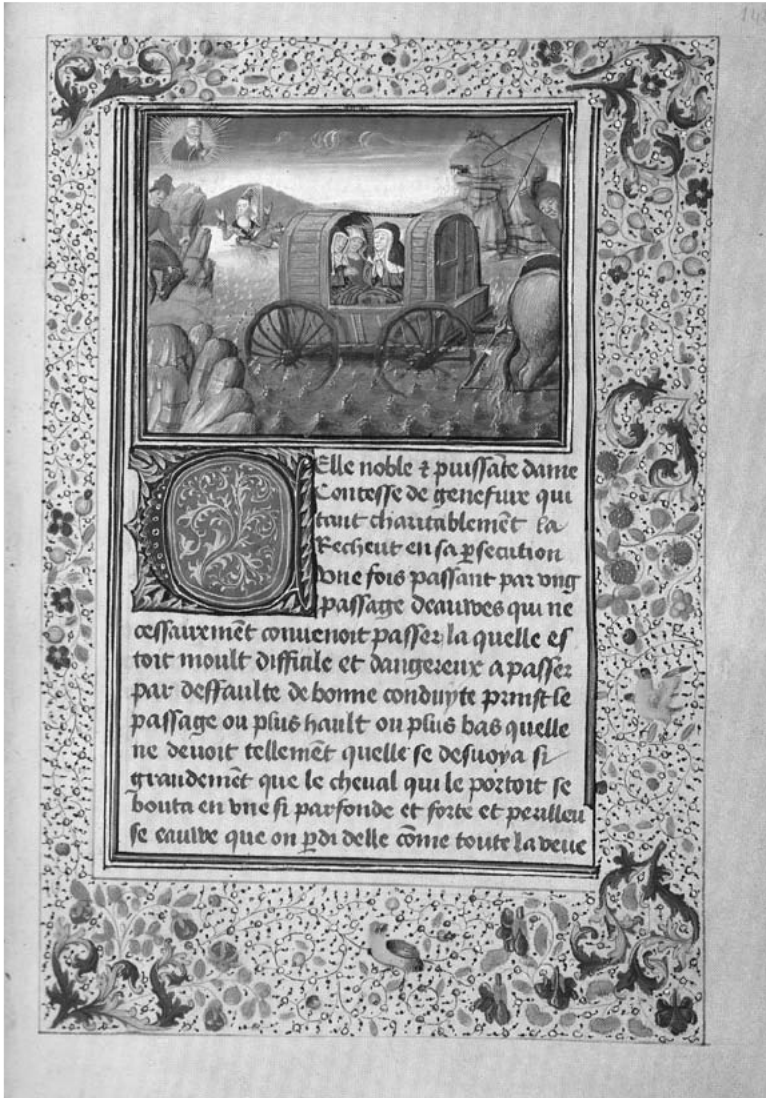 Elle noble ⁊ puissāte dame
Contesse de genefure qui
tant charitablemēt la
Recheut en sa ꝑsecution
Une fois passant par vng
passage deauwes qui ne
cessairemēt conuenoit passer la quelle es
toit moult difficile et dangereux a passer
par deffaulte de bonne conduyte prinst le
passage ou plus hault ou plus bas quelle
ne deuoit tellemēt quelle se desuoya si
grandemēt que le cheual qui le portoit se
bouta en vne si parfonde et forte et perilleu
se eauwe que on ꝑdi delle cōme toute la veue